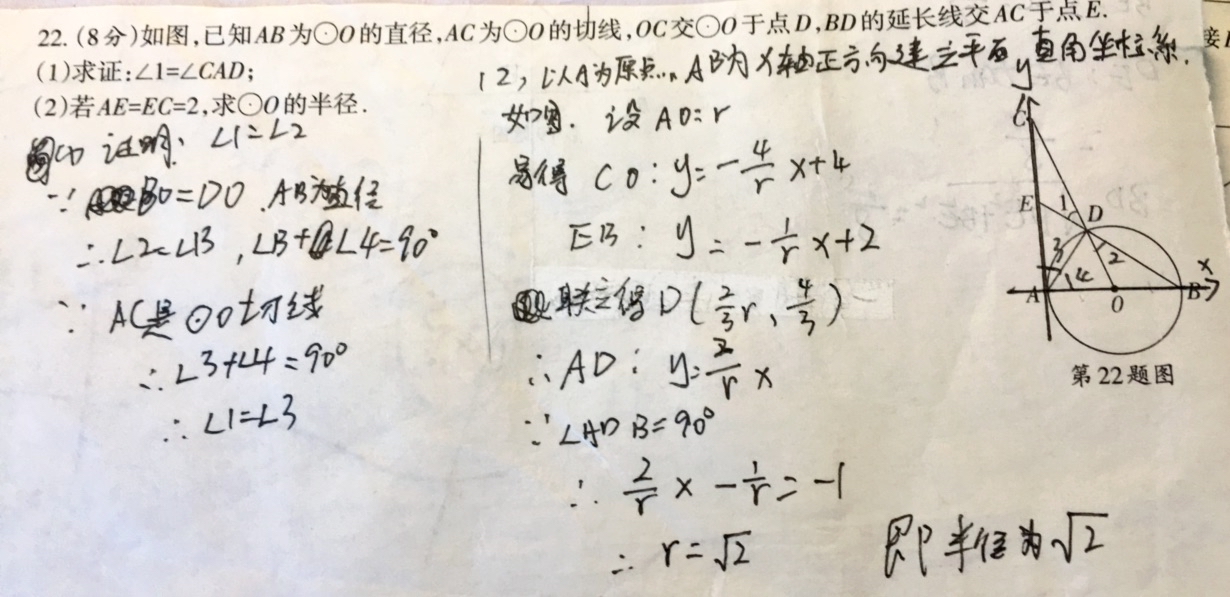 22. (8分)如图,已知AB为⊙O的直径,AC为⊙O的切线,OC交⊙O于点D,BD的延长线交AC于点E.
(1)求证:∠1=∠CAD;
(2)若AE=EC=2,求⊙O的半径.
(1) 证明: ∠1=∠2
∵ BO=DO . AB为直径
∴∠2=∠B , ∠B+∠4=90°
∵ AC是⊙O切线
∴ ∠3+∠4=90°
∴ ∠1=∠3
(2) 以A为原点, AB为x轴正方向建立平面直角坐标系.
如图. 设AO=r
易得 CO: y=-4/r x+4
EB: y=-1/r x+2
联立得D(2/3 r, 4/3)
∴ AD: y=2/r x
∵ ∠ADB=90°
∴ 2/r × -1/r = -1
∴ r=√2
即半径为√2
y
C
E
1
D
3
2
4
x
A
O
B
第22题图
接